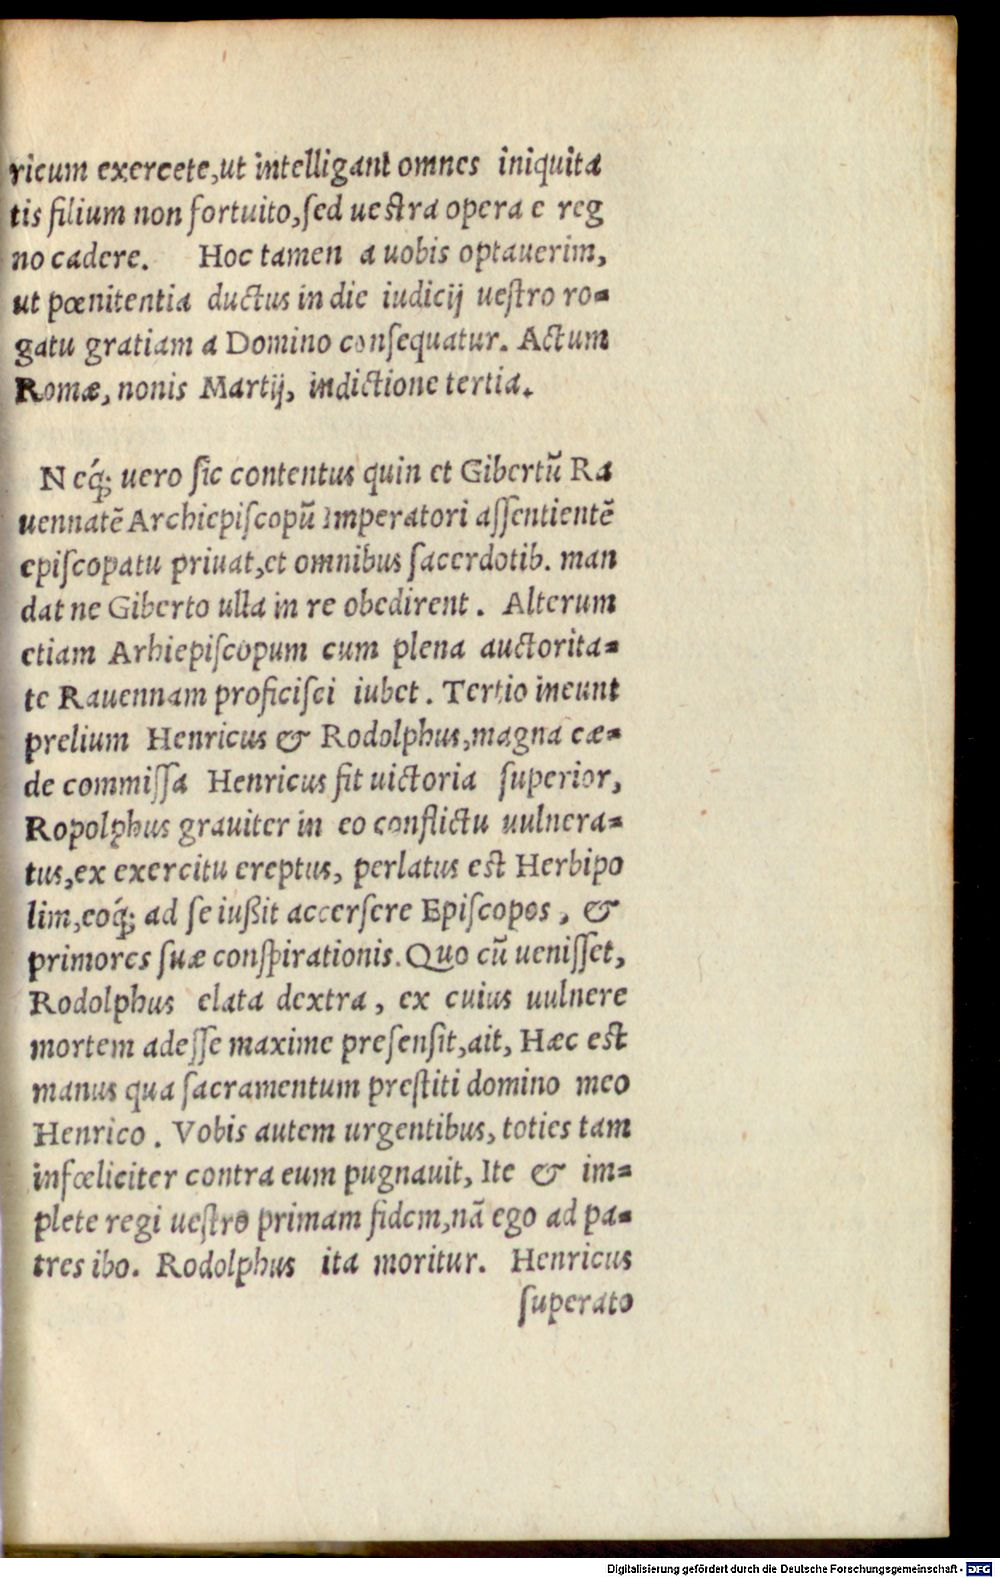 ricum exercete,ut intelligant omnes iniquita
tis filium non fortuito,ſed ueſtra opera e reg
no cadere. Hoc tamen a uobis optauerim,
ut pœnitentia ductus in die iudicij ueſtro ro-
gatu gratiam a Domino conſequatur. Actum
Romæ, nonis Martij, indictione tertia.
Neq́; uero ſic contentus quin et Gibertū Ra
uennatē Archiepiſcopū Imperatori aſſentientē
epiſcopatu priuat,et omnibus ſacerdotib. man
dat ne Giberto ulla in re obedirent. Alterum
etiam Arhiepiſcopum cum plena auctorita-
te Rauennam proficiſci iubet. Tertio ineunt
prelium Henricus & Rodolphus,magna cæ-
de commiſſa Henricus fit uictoria ſuperior,
Ropolphus grauiter in eo conflictu uulnera-
tus,ex exercitu ereptus, perlatus eſt Herbipo
lim,eoq́; ad ſe iußit accerſere Epiſcopos, &
primores ſuæ conſpirationis. Quo cū ueniſſet,
Rodolphus elata dextra, ex cuius uulnere
mortem adeſſe maxime preſenſit,ait, Hæc eſt
manus qua ſacramentum preſtiti domino meo
Henrico. Vobis autem urgentibus, toties tam
infœliciter contra eum pugnauit, Ite & im-
plete regi ueſtro primam fidem,nā ego ad pa-
tres ibo. Rodolphus ita moritur. Henricus
ſuperato
Digitalisierung gefördert durch die Deutsche Forschungsgemeinschaft - DFG